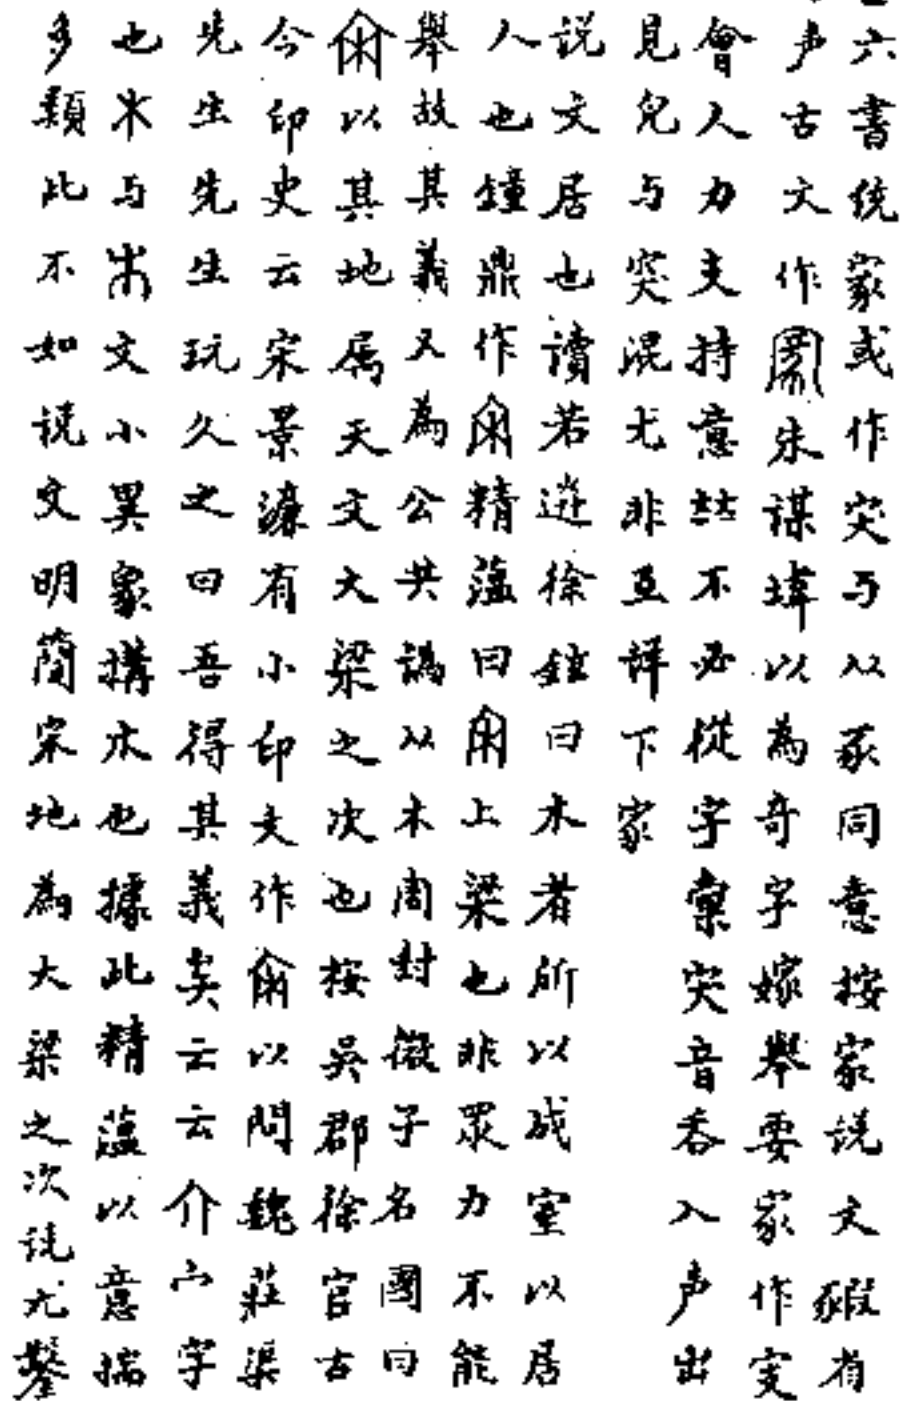 六書統家或作宊与从豕同意按家说文豭省
声古文作𡩅朱謀㙔以為奇字嫁舉要家作㝎
會人力支持意喆不必從字窠宊音呑入声出
見兒与突混尤非互详下家
说文居也讀若送徐鉉曰木者所以成室以居
人也鐘鼎作精藴曰上梁也非眾力不能
舉故其義又為公共譌从木周封微子名國曰
以其地属天文大梁之次也按吳郡徐官古
今印史云宋景濂有小印文作以問魏莊渠
先生先生玩久之曰吾得其義矣云云介宀字
也木与文小異象搆木也據此精藴以意揣
多類此不如说文明簡宋地為大梁之次说尤鑿